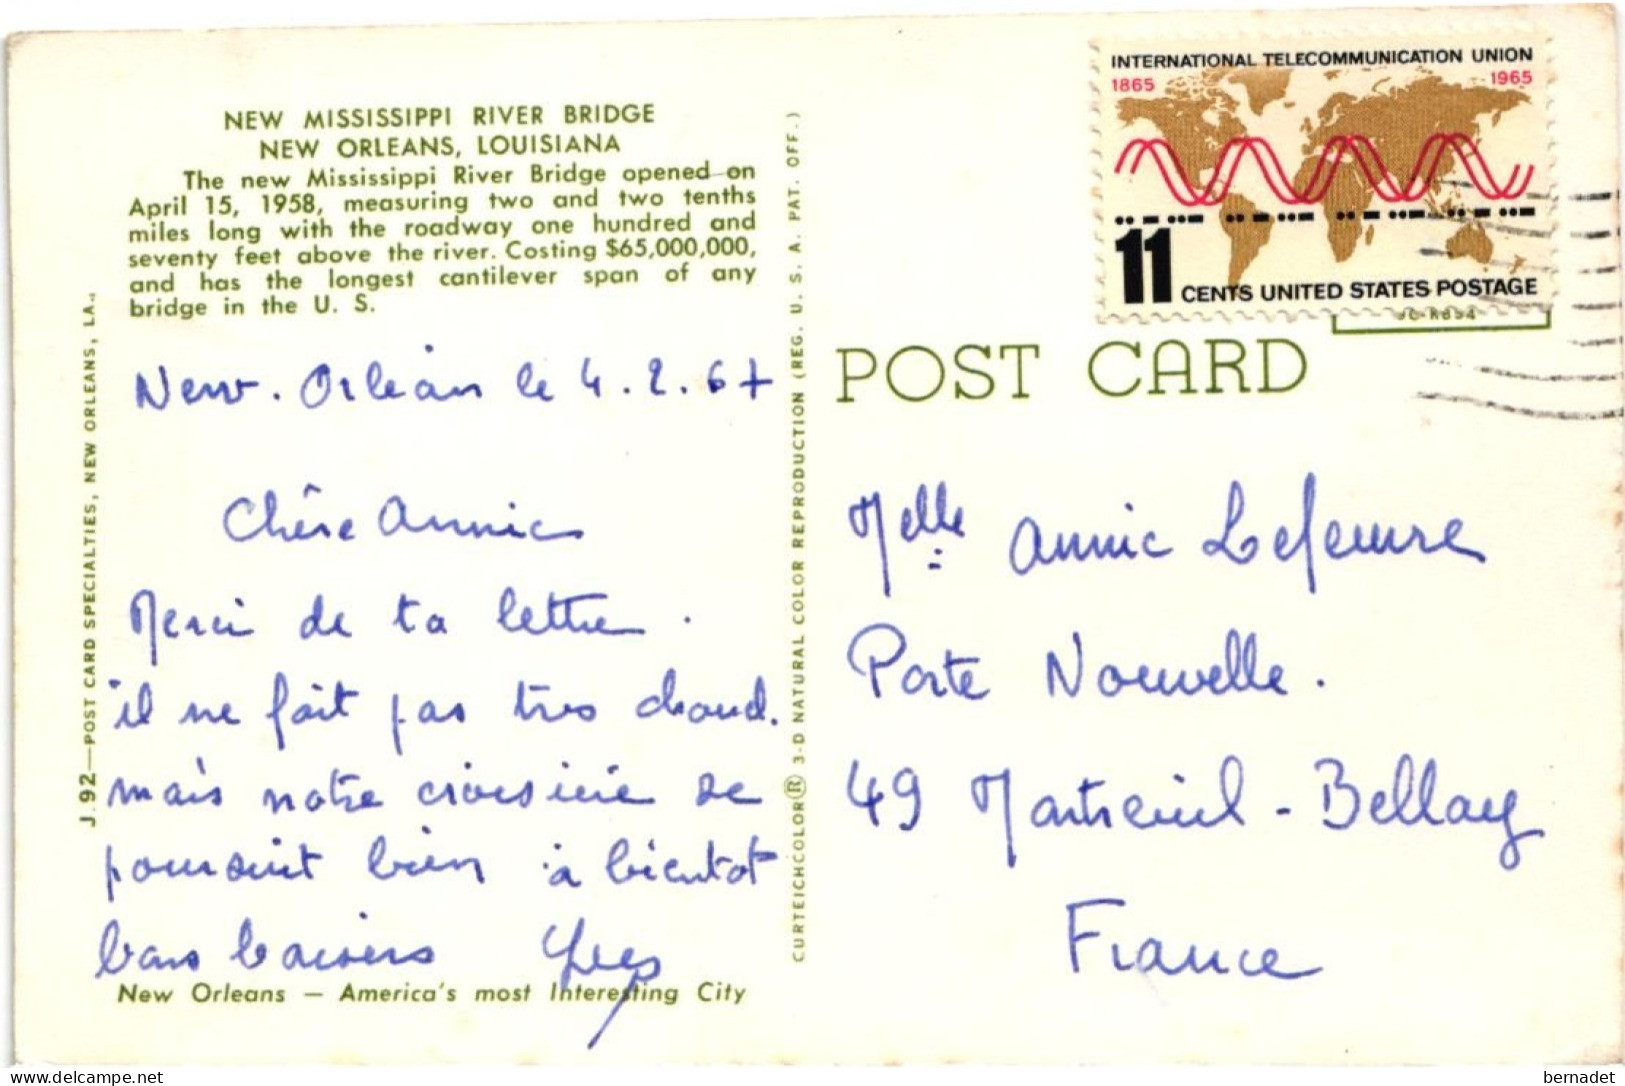 NEW MISSISSIPPI RIVER BRIDGE
NEW ORLEANS, LOUISIANA
The new Mississippi River Bridge opened on
April 15, 1958, measuring two and two tenths
miles long with the roadway one hundred and
seventy feet above the river. Costing $65,000,000,
and has the longest cantilever span of any
bridge in the U. S.
New. Orléan le 4.2.67
Chère Annic
Merci de ta lettre.
il ne fait pas très chaud.
mais notre croisière se
poursuit bien à bientot
bons baisers Yves
New Orleans — America's most Interesting City
J.92—POST CARD SPECIALTIES, NEW ORLEANS, LA.,
CURTEICHCOLOR® 3-D NATURAL COLOR REPRODUCTION (REG. U. S. A. PAT. OFF.)
INTERNATIONAL TELECOMMUNICATION UNION
1865 1965
11 CENTS UNITED STATES POSTAGE
POST CARD
Melle Annic Lefeuvre
Porte Nouvelle.
49 Montreuil-Bellay
France
bernadet